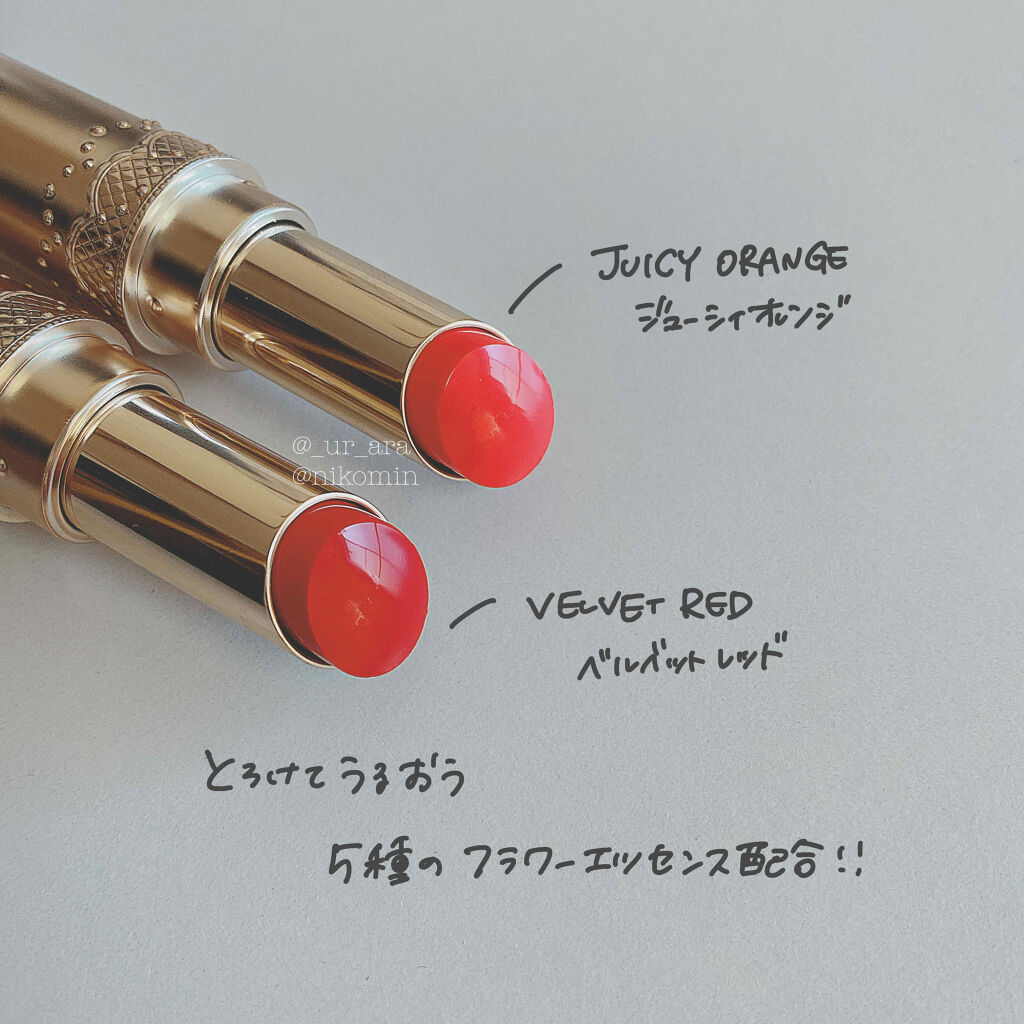 JUICY ORANGE
ジューシィオレンジ
@_ur_ara
@nikomin
VELVET RED
ベルベットレッド
とろけてうるおう
5種のフラワーエッセンス配合!!